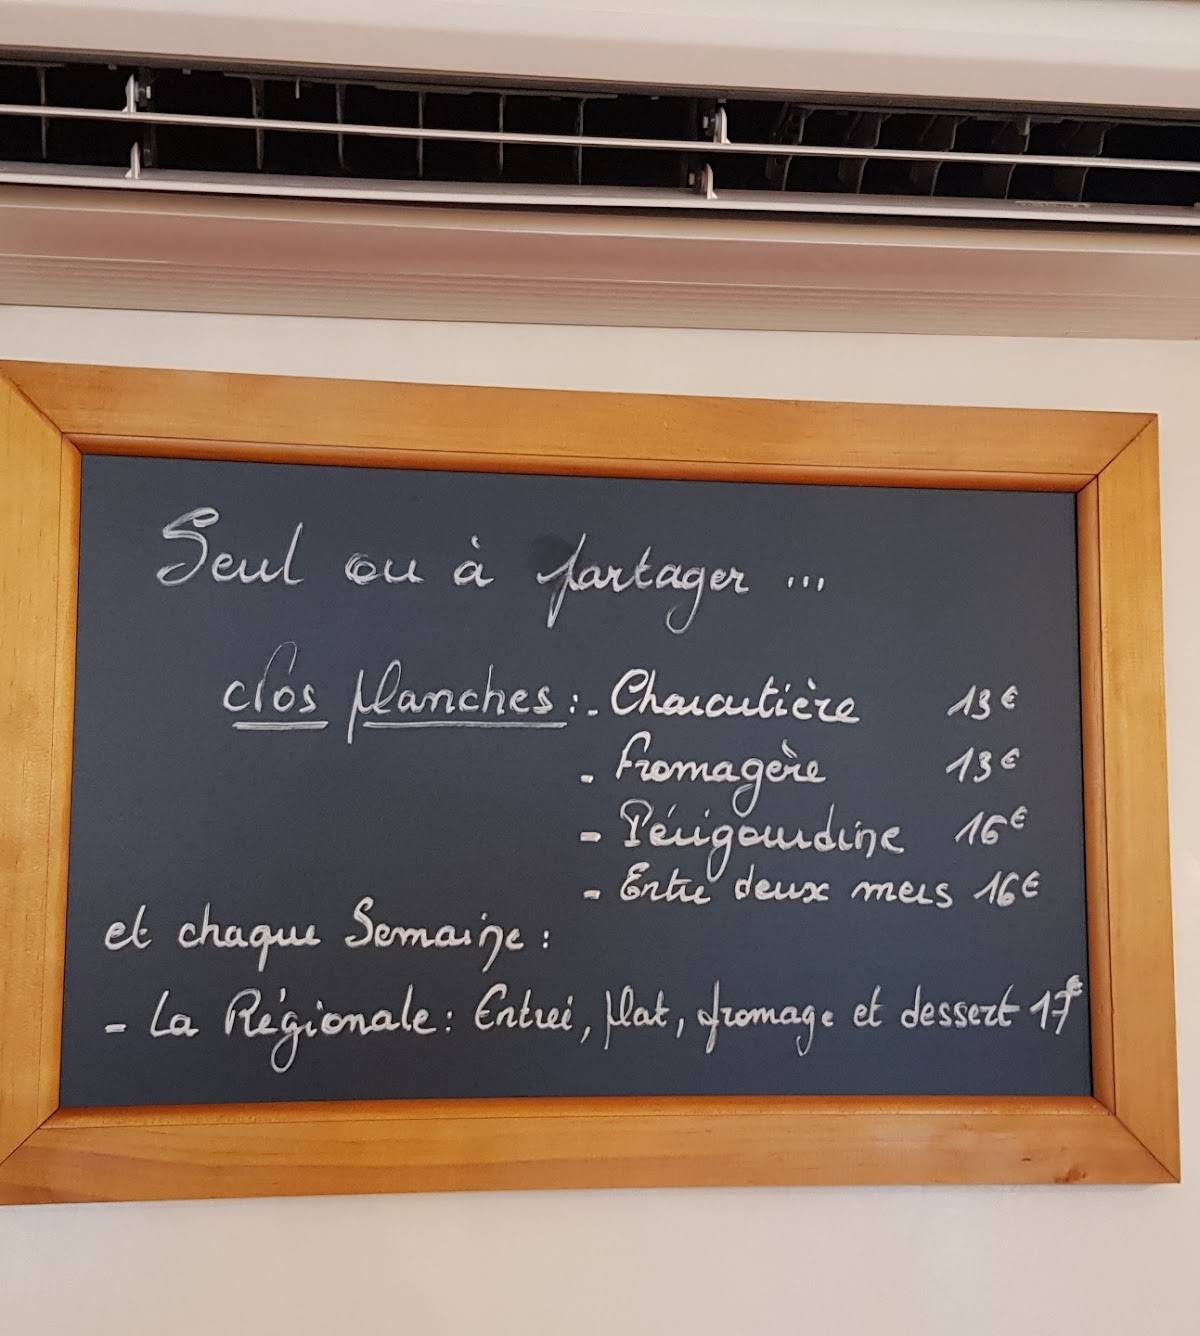 Seul ou à partager ...
clos planches : - Charcutière 13€
- Fromagère 13€
- Périgourdine 16€
- Entre deux mers 16€
et chaque Semaine :
- La Régionale : Entrée, plat, fromage et dessert 17€